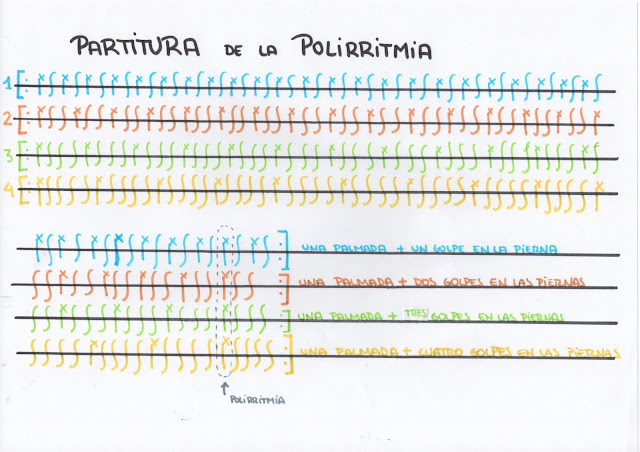 PARTITURA DE LA POLIRRITMIA
1
2
3
4
UNA PALMADA + UN GOLPE EN LA PIERNA
UNA PALMADA + DOS GOLPES EN LAS PIERNAS
UNA PALMADA + TRES GOLPES EN LAS PIERNAS
UNA PALMADA + CUATRO GOLPES EN LAS PIERNAS
POLIRRITMIA